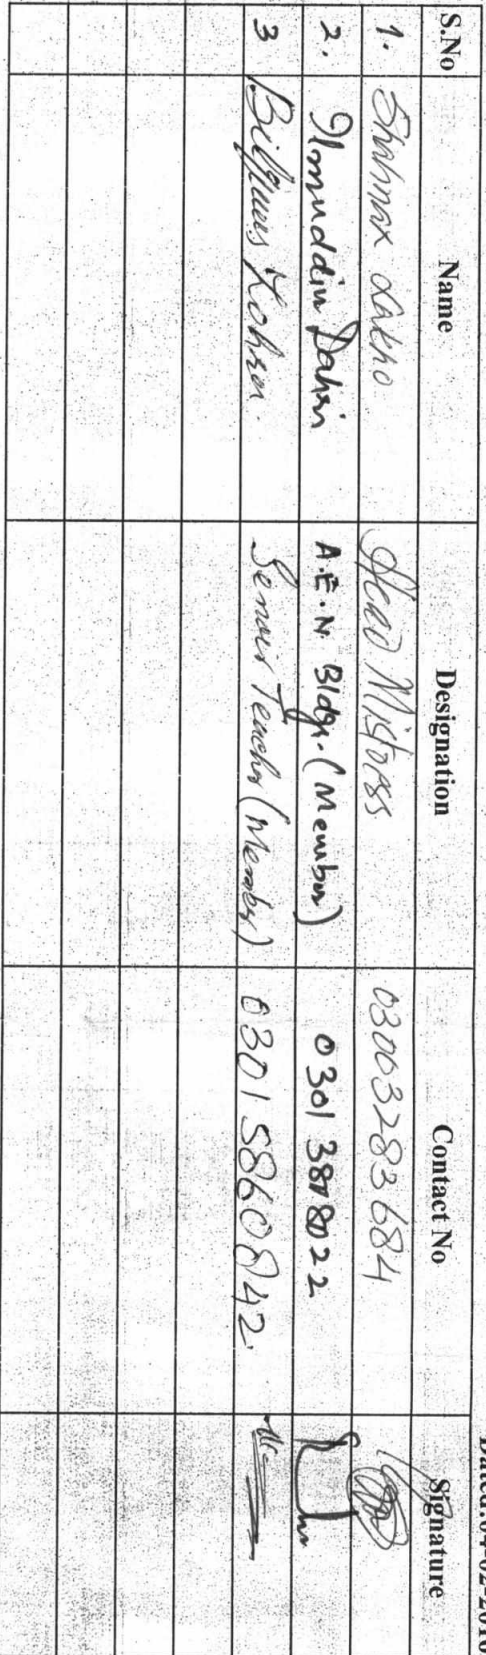 Dated:04-02-2016
S.No Name Designation Contact No Signature
1. Shahnaz Lakho Head Mistress 03003283684
2. Ilmuddin Dahri A.E.N Bldgs. (Member) 0301 3878022
3 Bilquees Zohra. Senior Teacher (Member) 0301 5860842.